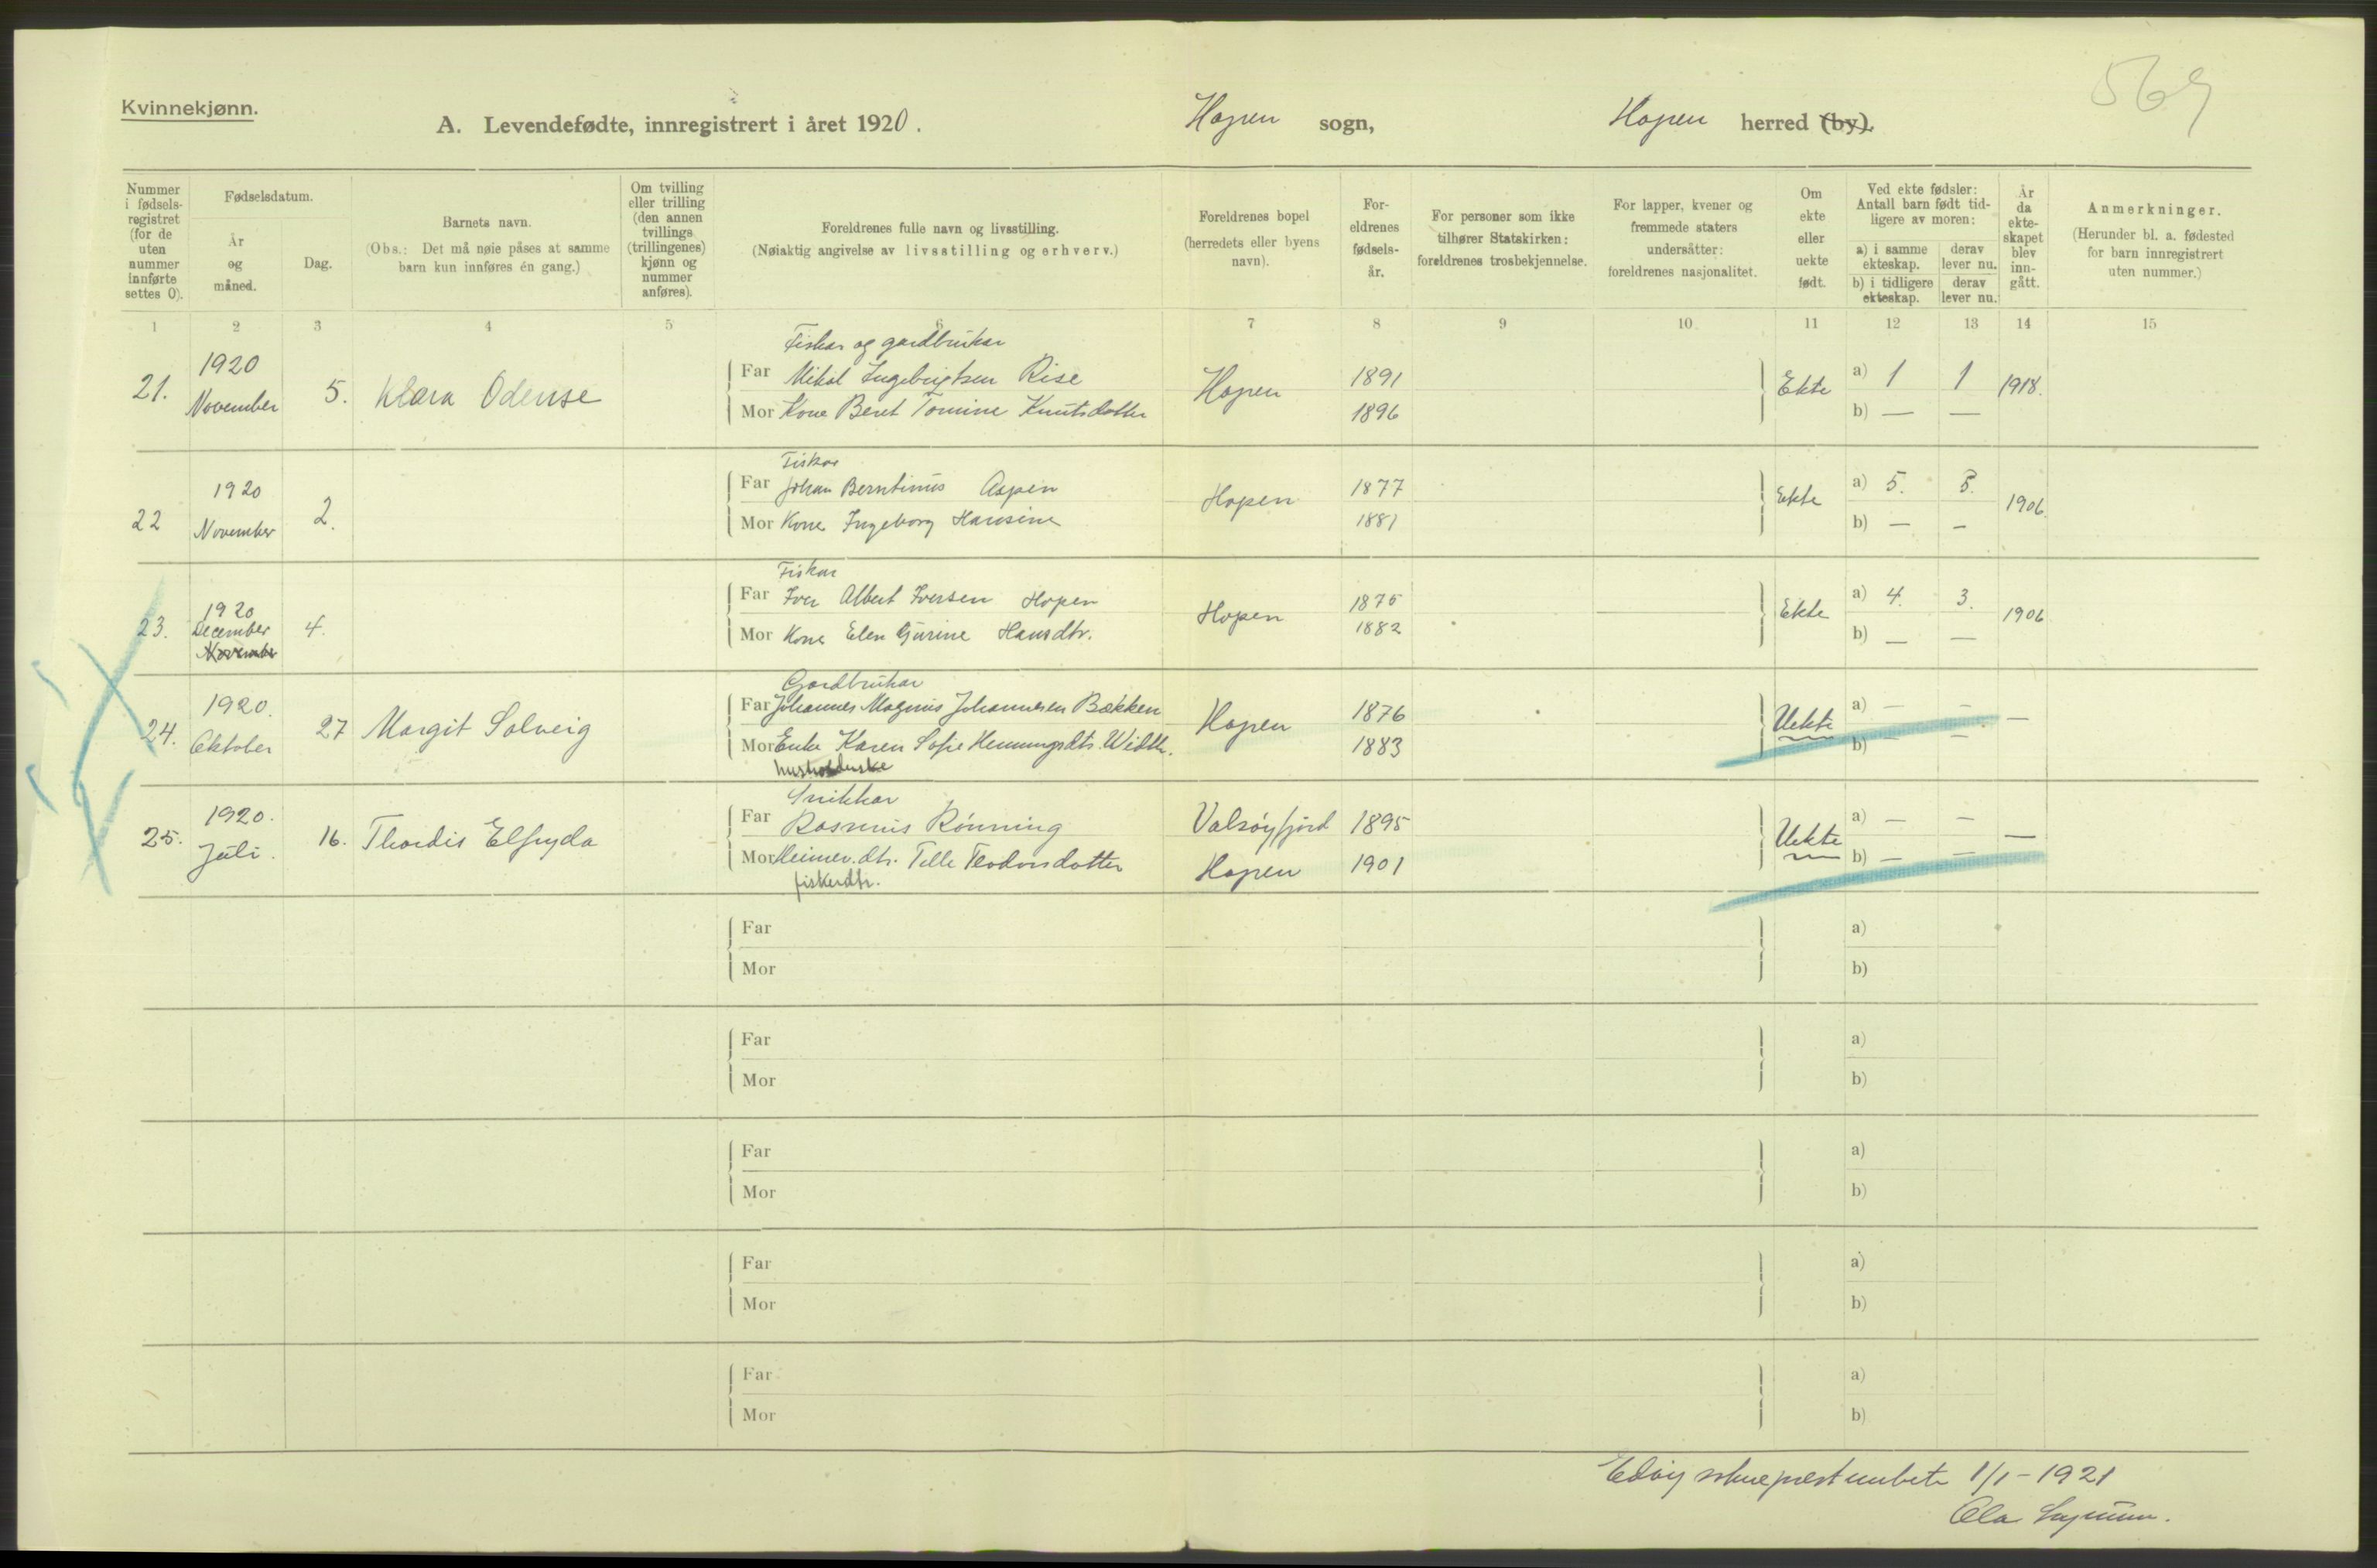 569
Kvinnekjønn.
A. Levendefødte, innregistrert i året 1920. Hopen sogn, Hopen herred (by).
Nummer i fødselsregistret (for de uten nummer innførte settes 0).
Fødselsdatum.
År og måned.
Dag.
Barnets navn.
(Obs.: Det må nøie påses at samme barn kun innføres én gang.)
Om tvilling eller trilling (den annen tvillings (trillingenes) kjønn og nummer anføres).
Foreldrenes fulle navn og livsstilling.
(Nøiaktig angivelse av livsstilling og erhverv.)
Foreldrenes bopel (herredets eller byens navn).
Foreldrenes fødselsår.
For personer som ikke tilhører Statskirken: foreldrenes trosbekjennelse.
For lapper, kvener og fremmede staters undersåtter: foreldrenes nasjonalitet.
Om ekte eller uekte født.
Ved ekte fødsler: Antall barn født tidligere av moren:
a) i samme ekteskap. derav lever nu.
b) i tidligere ekteskap. derav lever nu.
År da ekteskapet blev inngått.
Anmerkninger.
(Herunder bl. a. fødested for barn innregistrert uten nummer.)
1 2 3 4 5 6 7 8 9 10 11 12 13 14 15
Fiskar og gardbrukar
21. 1920 November 5. Klara Odense
Far Mikal Ingebrigtsen Rise Hopen 1891 Ekte a) 1 1 1918.
Mor Kone Beret Tomine Knutsdotter 1896 b) — —
Fiskar
22 1920 November 2.
Far Johan Berntinus Aspen Hopen 1877 Ekte a) 5. 5. 1906.
Mor Kone Ingeborg Hansine 1881 b) — —
Fiskar
23. 1920 December November 4.
Far Iver Albert Iversen Hopen Hopen 1875 Ekte a) 4. 3. 1906
Mor Kone Elen Gurine Hansdtr. 1882 b) — —
Gardbrukar
24. 1920. Oktober 27 Margit Solveig
Far Johannes Magnus Johannesen Bækken Hopen 1876 Uekte a) — — —
Mor Enke Karen Sofie Henningsdtr. 1883 b) — —
husholderske
Snikkar
25. 1920. Juli. 16. Thordis Elfryda
Far Rasmus Rönning Valsöyfjord 1895 Uekte a) — — —
Mor Heimev. dtr. Telle Teodorsdotter Hopen 1901 b) — —
fiskerdtr.
Far a)
Mor b)
Far a)
Mor b)
Far a)
Mor b)
Far a)
Mor b)
Far a)
Mor b)
Edöy sokneprestembete 1/1-1921
Ola